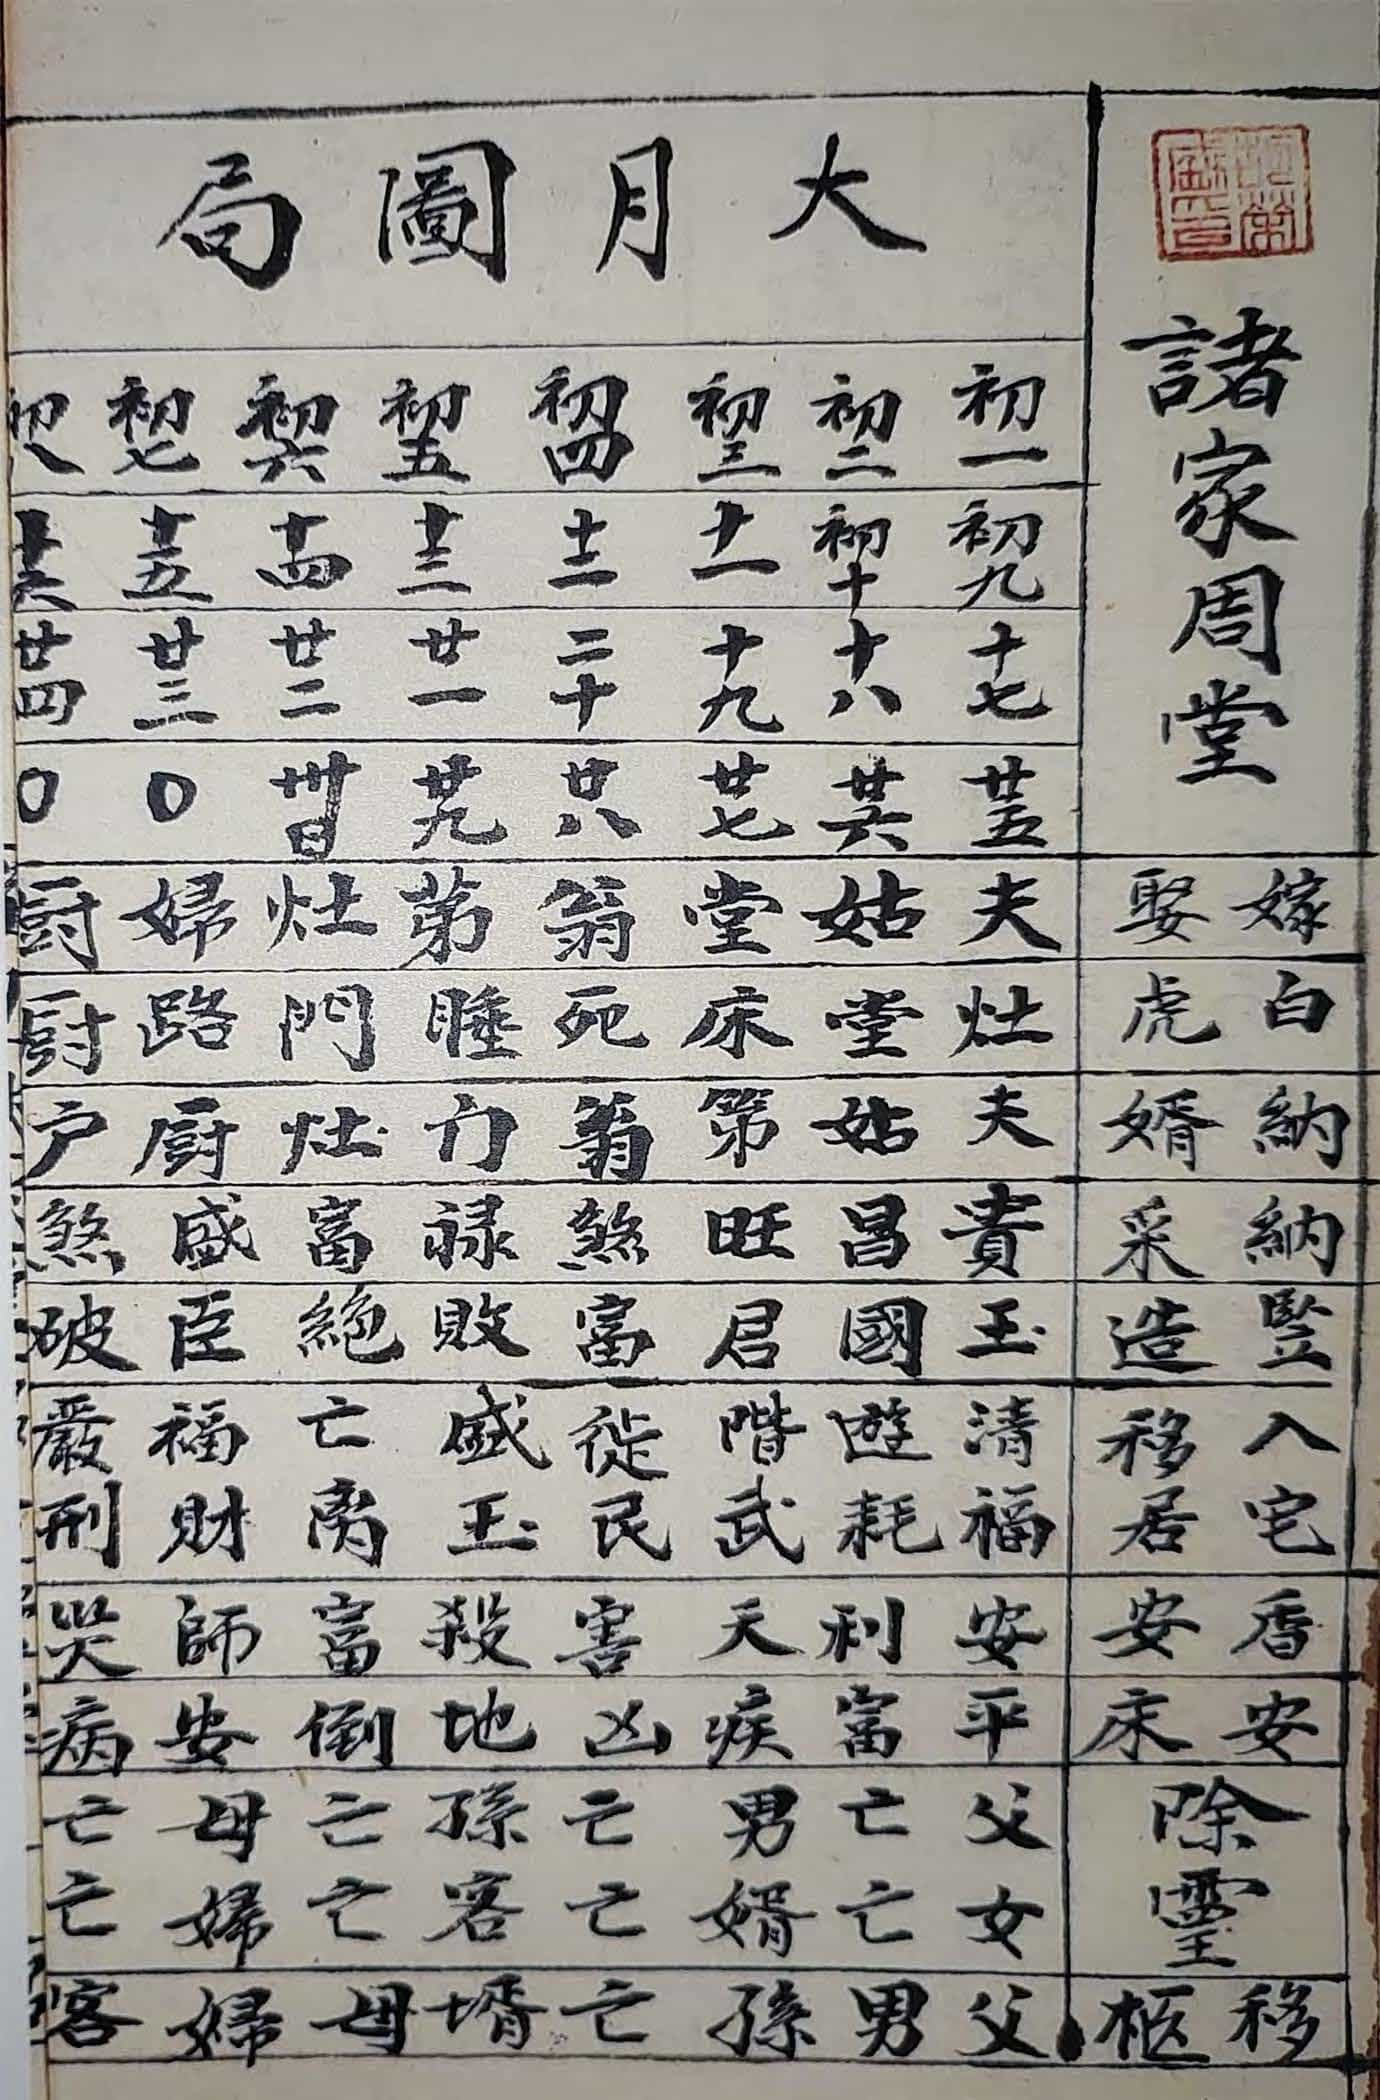 諸家周堂
大月圖局
初一 初二 初三 初四 初五 初六 初七 初八
初九 初十 十一 十二 十三 十四 十五 十六
十七 十八 十九 二十 廿一 廿二 廿三 廿四
廿五 廿六 廿七 廿八 廿九 卅日 〇 〇
嫁娶 夫 姑 堂 翁 苐 灶 婦 厨
白虎 灶 堂 床 死 睡 門 路 厨
納婿 夫 姑 第 翁 门 灶 厨 户
納采 貴 昌 旺 煞 禄 富 盛 煞
豎造 玉 國 君 富 敗 絶 臣 破
入宅移居 清福 遊耗 階武 徙民 盛玉 亡离 福財 嚴刑
香安 安 利 天 害 殺 富 師 哭
安床 平 富 疾 凶 地 倒 安 病
除靈 父女 亡亡 男婿 亡亡 孫客 亡亡 母婦 亡亡
移柩 父 男 孫 亡 壻 母 婦 客